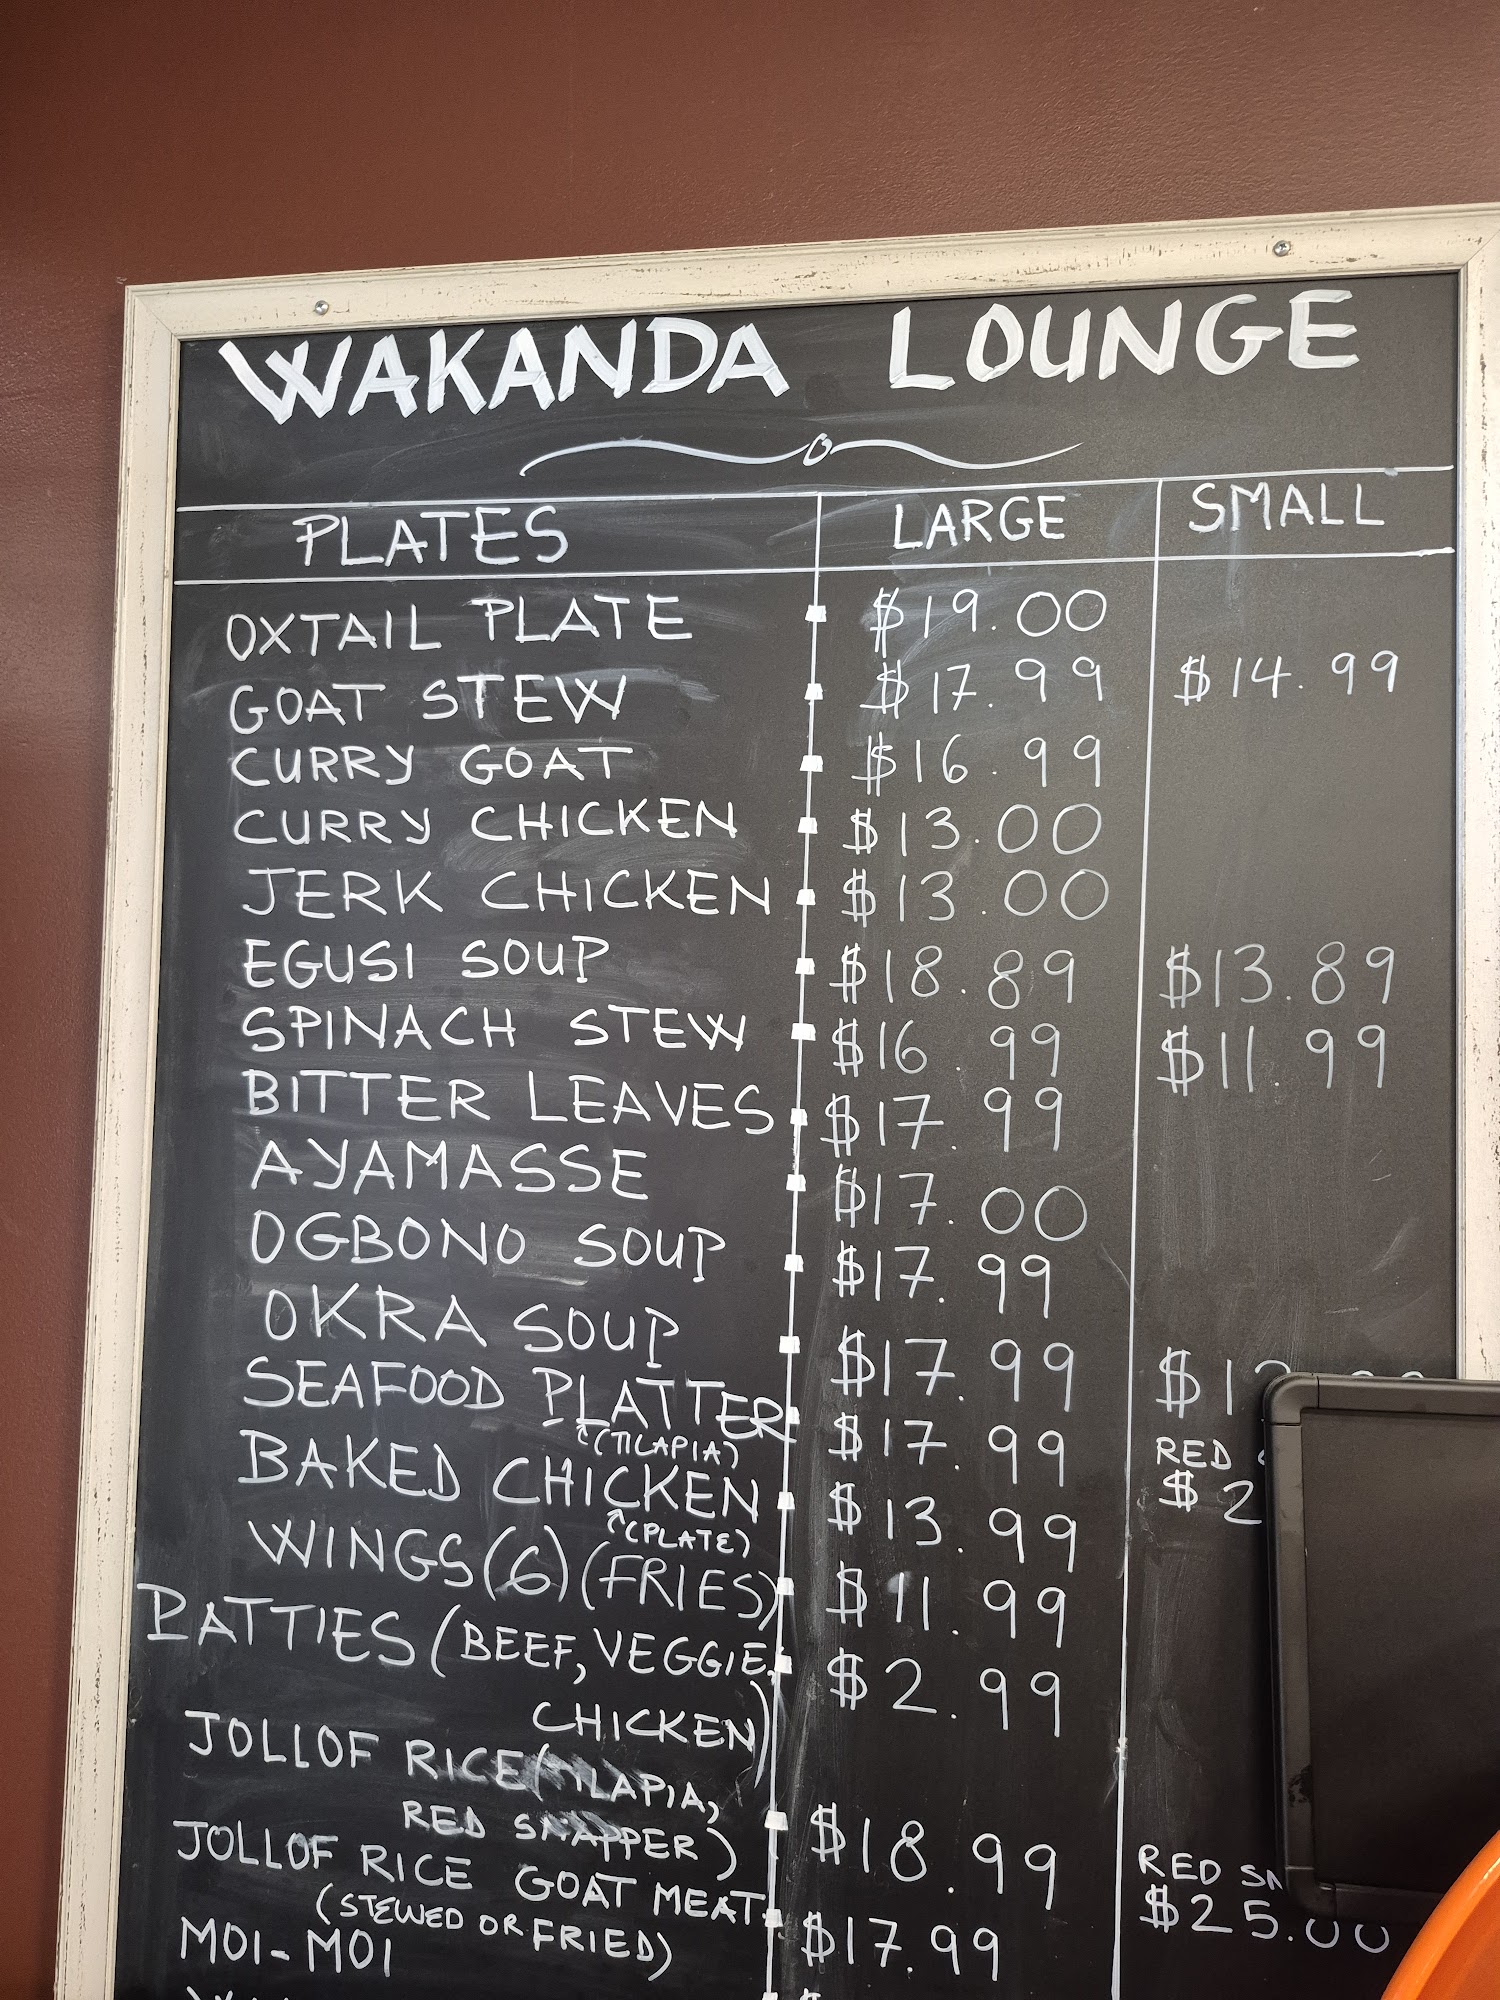 WAKANDA LOUNGE
PLATES LARGE SMALL
OXTAIL PLATE $19.00
GOAT STEW $17.99 $14.99
CURRY GOAT $16.99
CURRY CHICKEN $13.00
JERK CHICKEN $13.00
EGUSI SOUP $18.89 $13.89
SPINACH STEW $16.99 $11.99
BITTER LEAVES $17.99
AYAMASSE $17.00
OGBONO SOUP $17.99
OKRA SOUP $17.99
SEAFOOD PLATTER $17.99 RED
(TILAPIA)
BAKED CHICKEN $13.99
(PLATE)
WINGS (6) (FRIES) $11.99
PATTIES (BEEF, VEGGIE, $2.99
CHICKEN)
JOLLOF RICE (TILAPIA,
RED SNAPPER) $18.99 RED
JOLLOF RICE GOAT MEAT $17.99 $25.00
(STEWED OR FRIED)
MOI-MOI